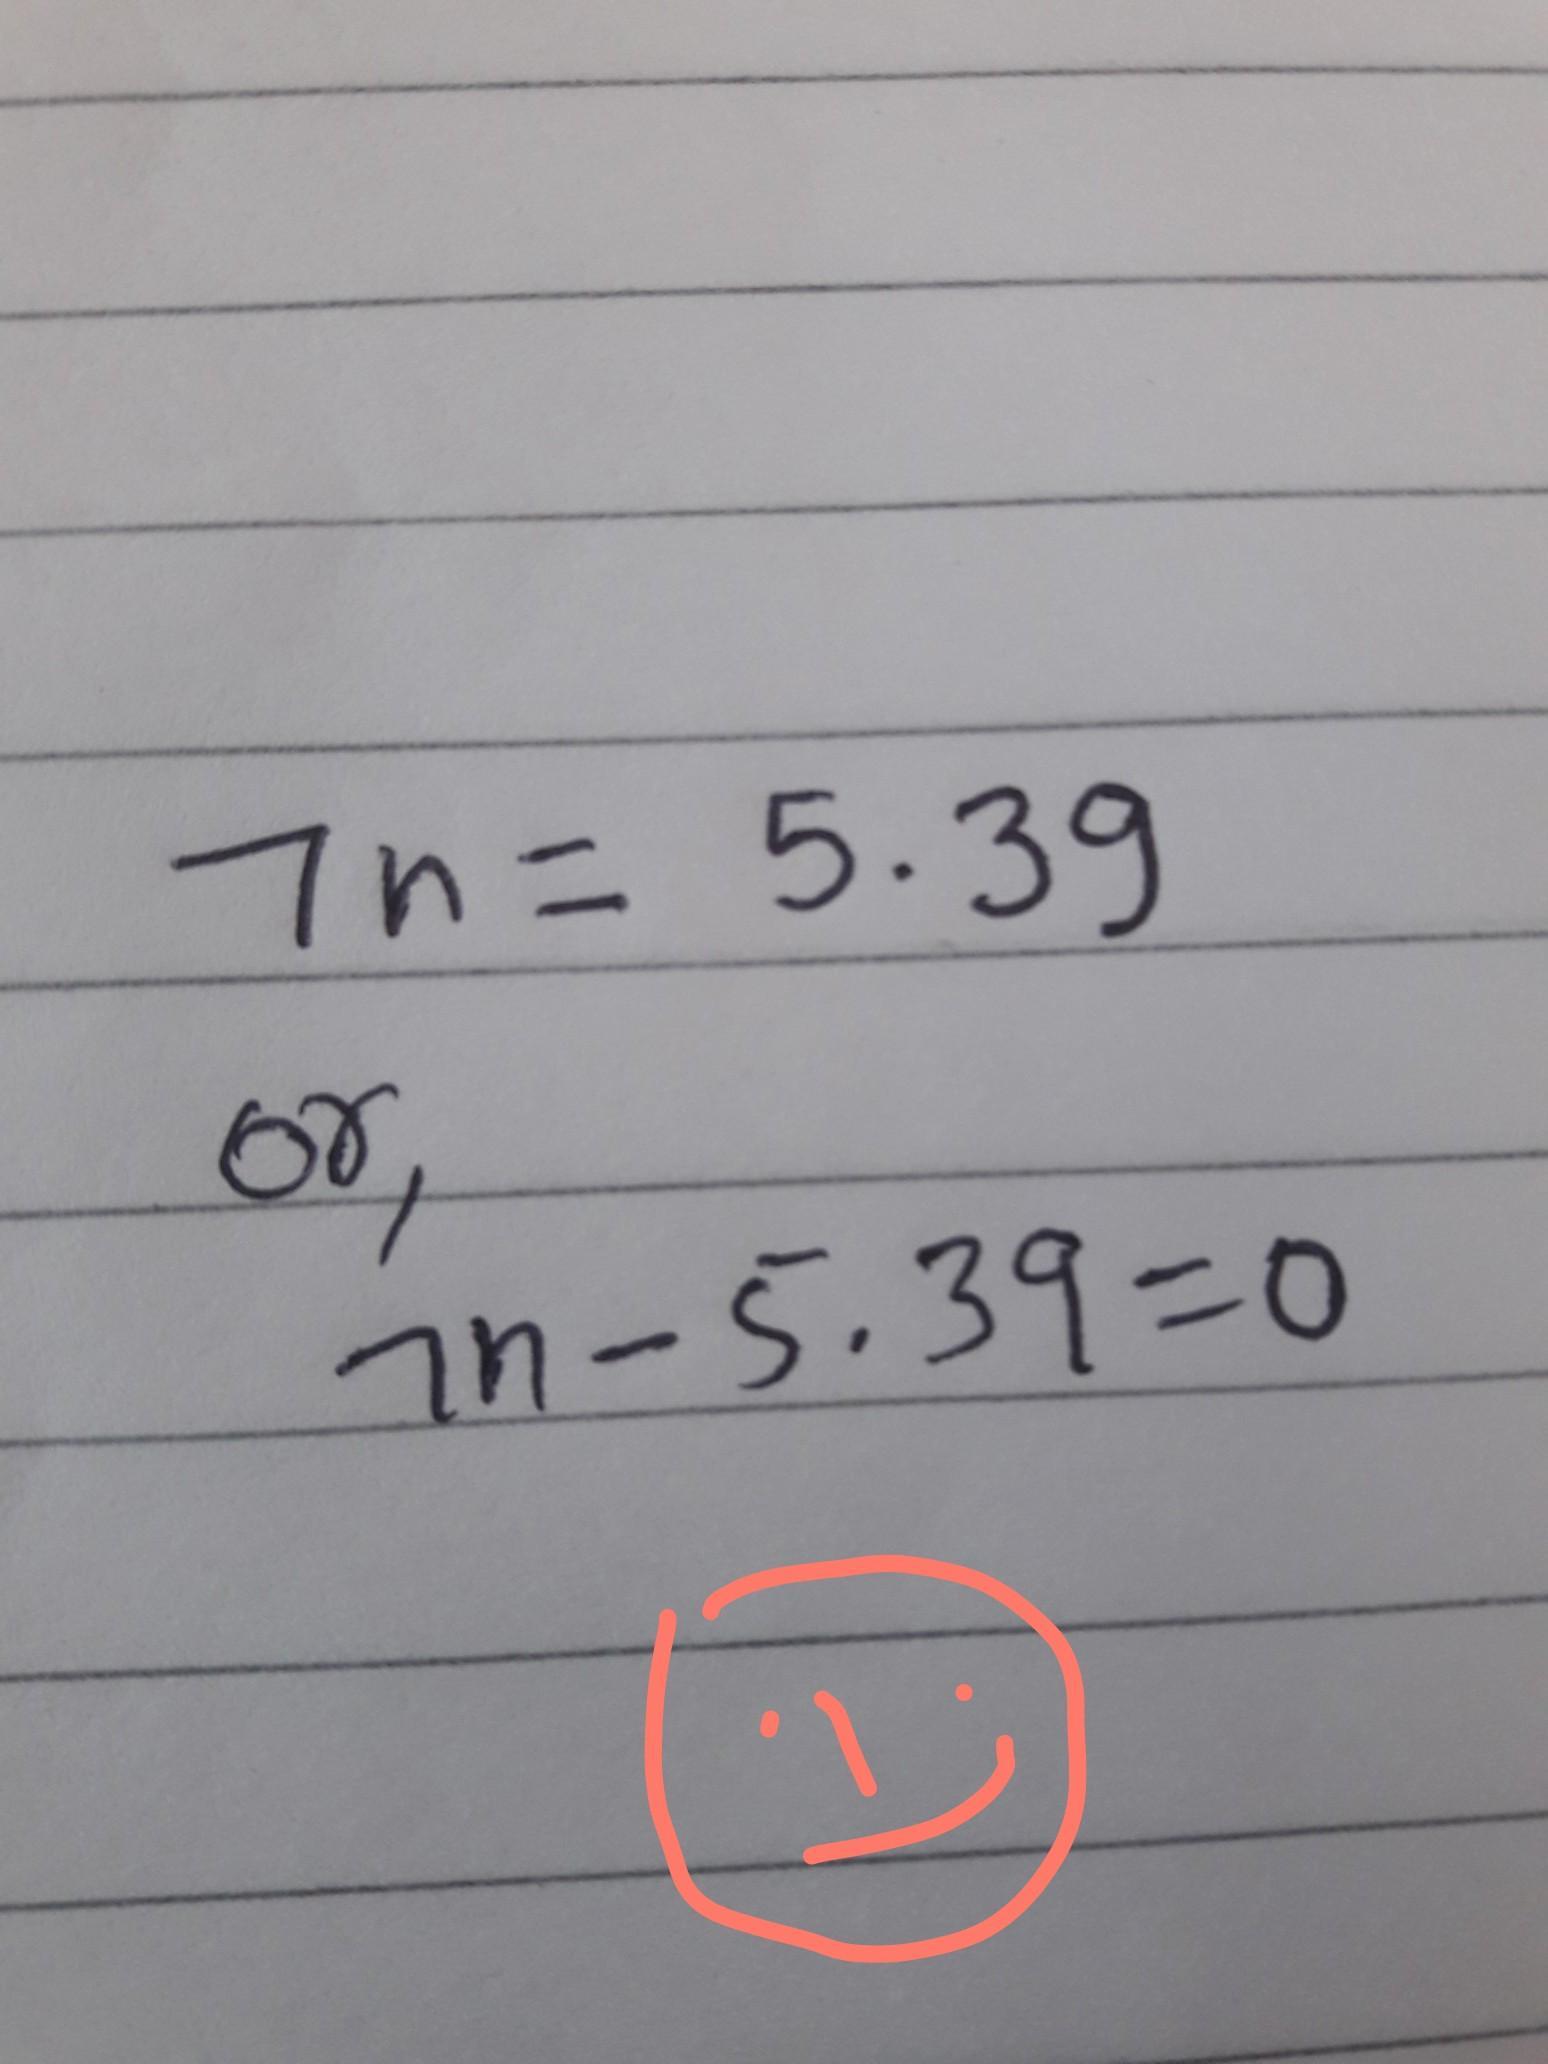 7n = 5.39
or,
7n - 5.39 = 0